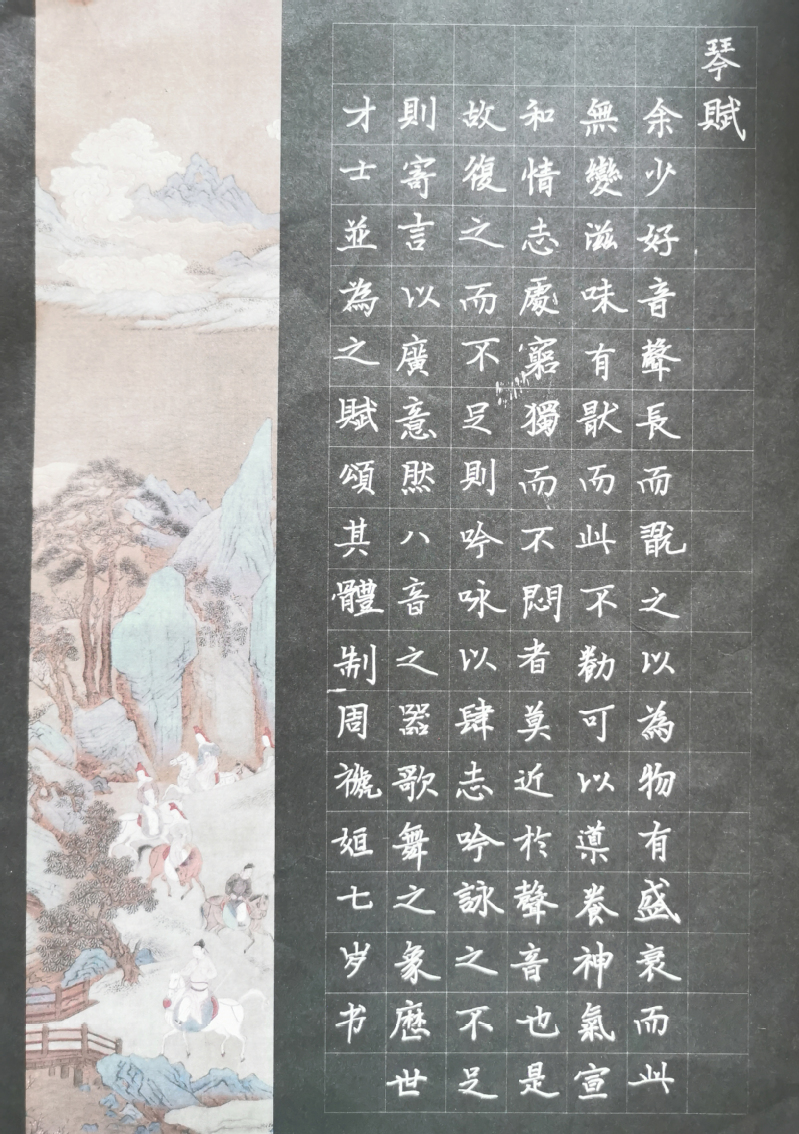 琴賦
余少好音聲長而翫之以為物有盛衰而此
無變滋味有猒而此不勌可以導養神氣宣
和情志處窮獨而不悶者莫近於聲音也是
故復之而不足則吟咏以肆志吟詠之不足
則寄言以廣意然八音之器歌舞之象歷世
才士並為之賦頌其體制周褫姮七岁书